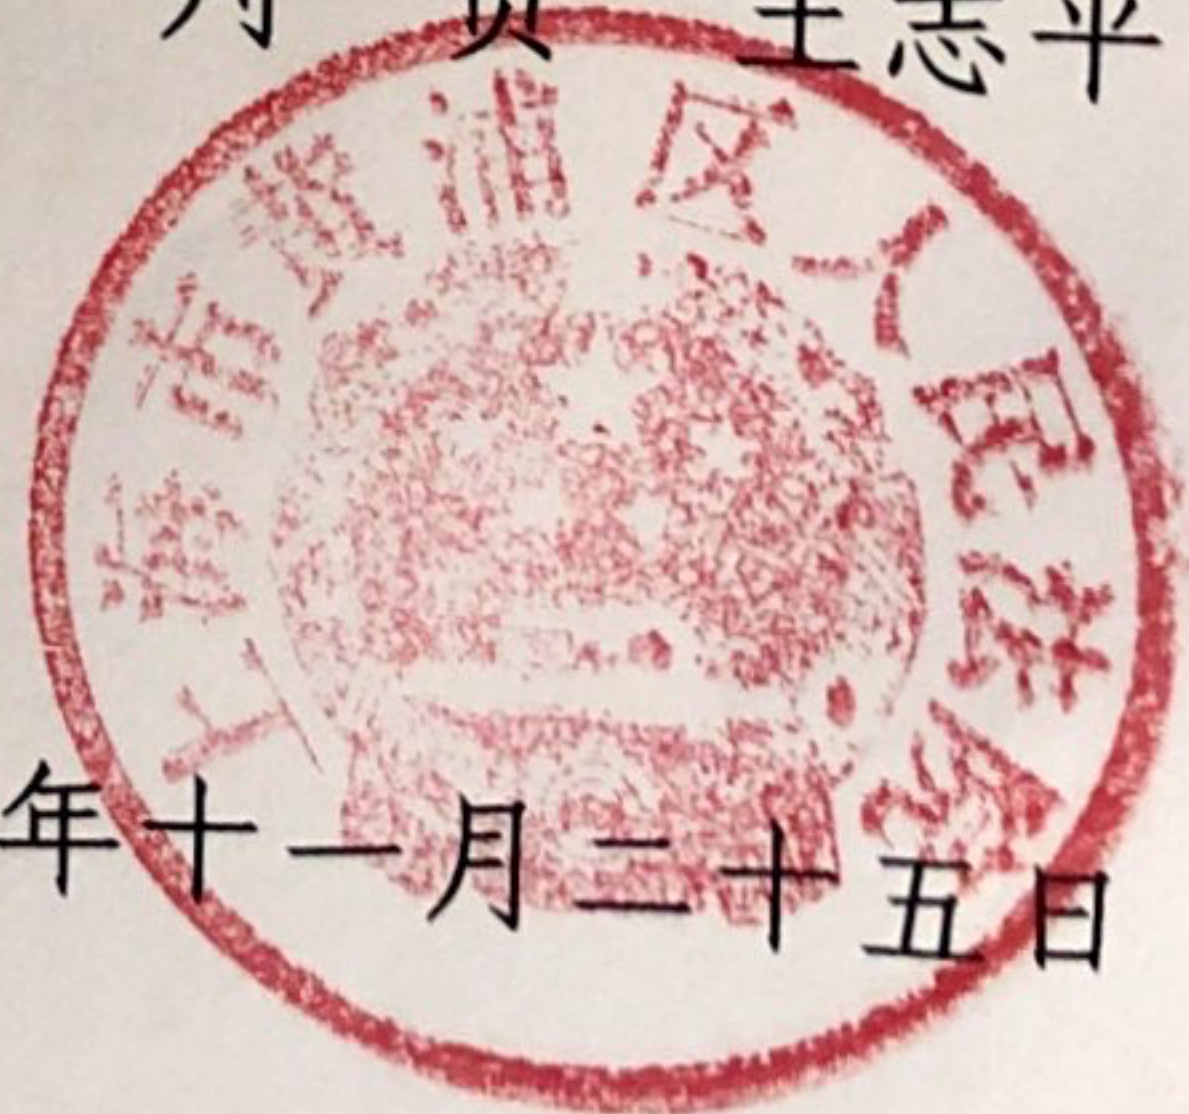 王志平
上海市黄浦区人民法院
年十一月二十五日